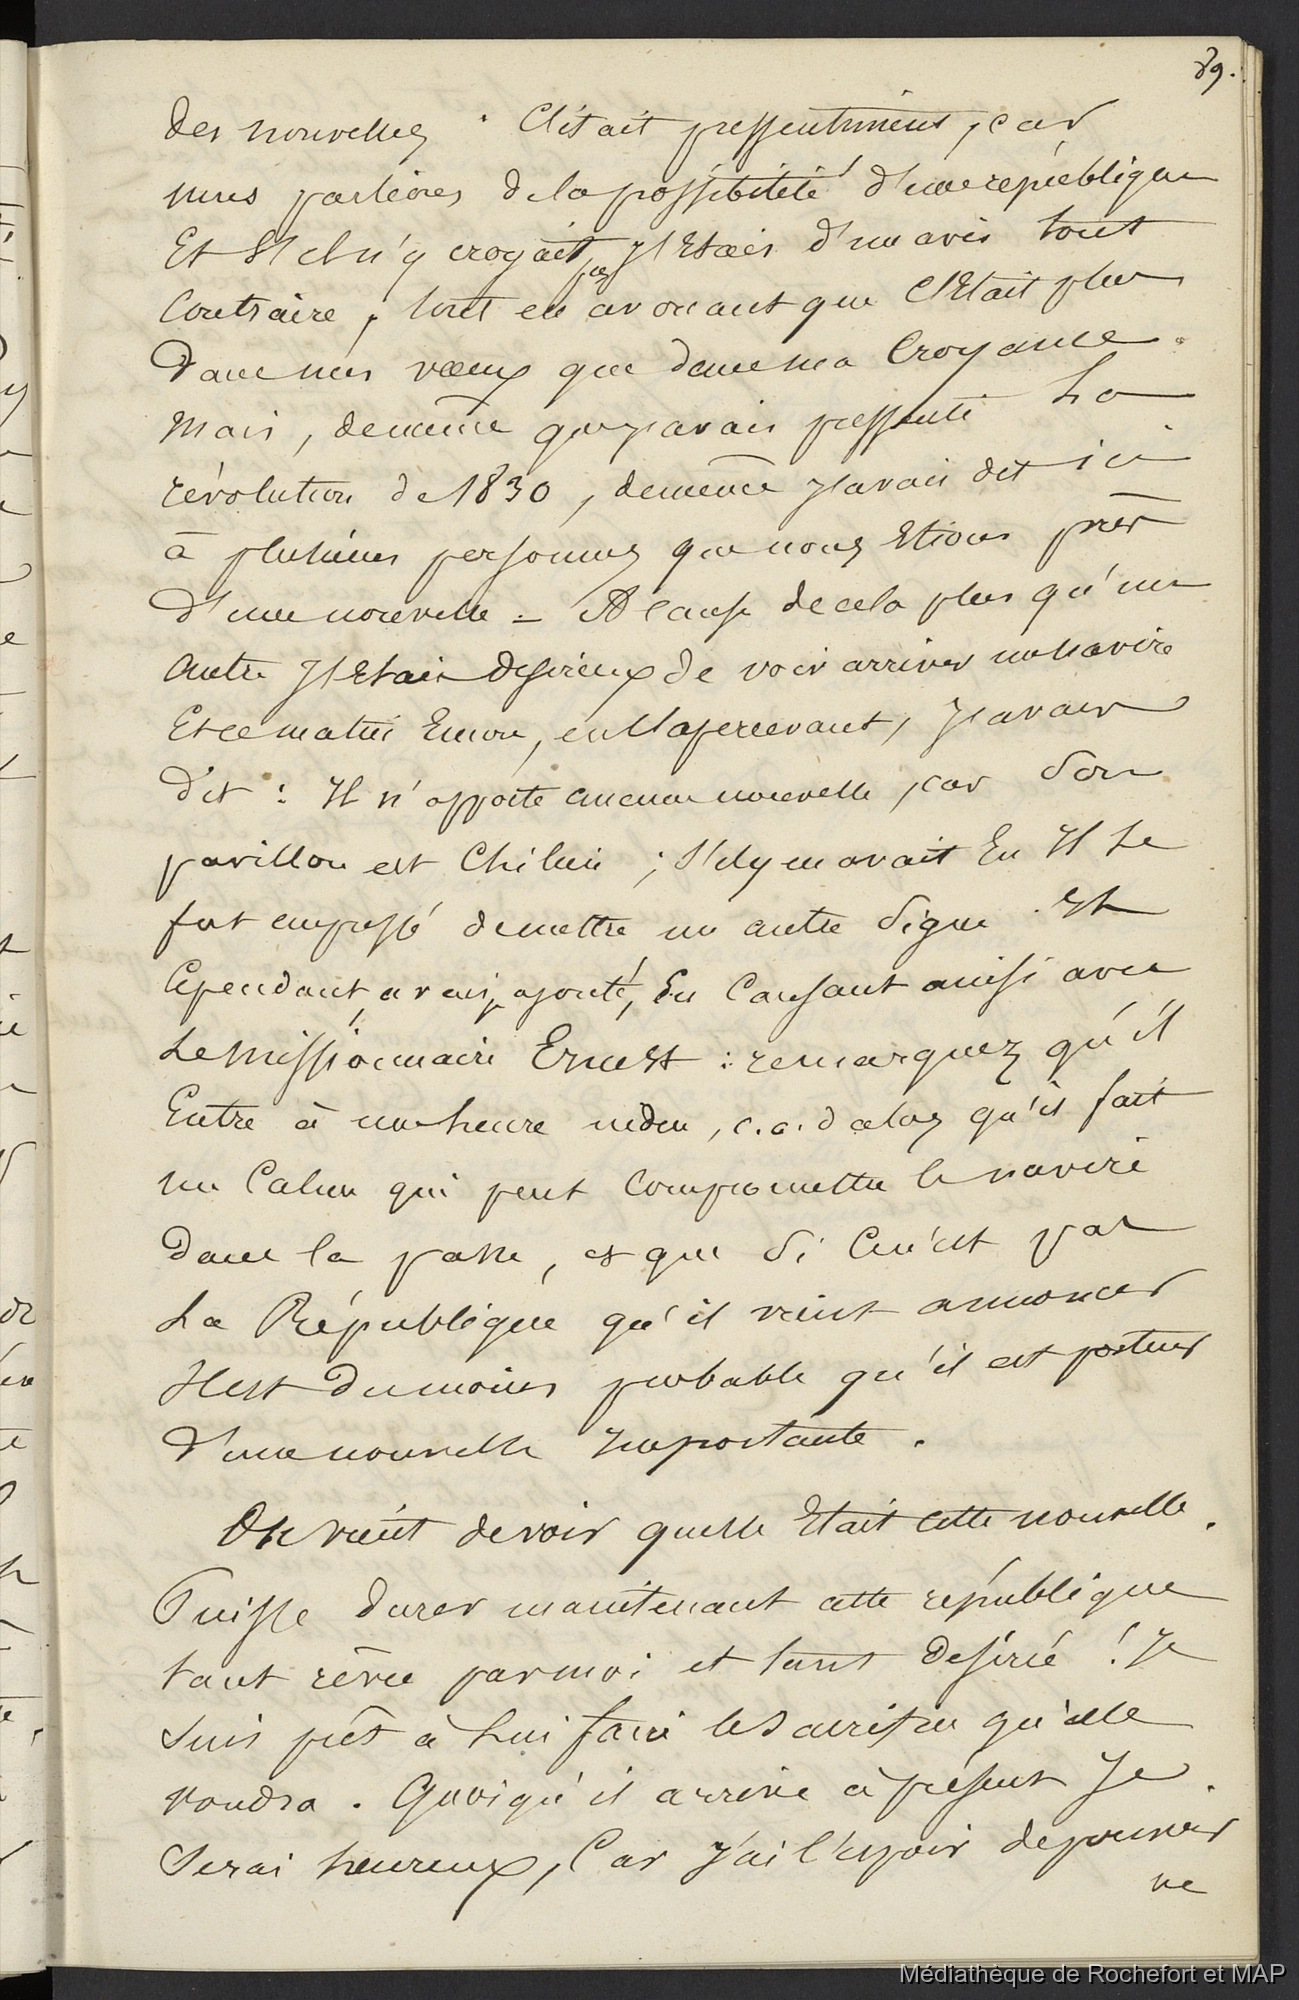 89.
des nouvelles. C'était pressentiment, car
nous parlions de la possibilité d'une république
Et Il n'y croyait pas J'Etais d'un avis tout
Contraire, tout en avouant que C'Etait plus
dans mes vœux que dans ma Croyance.
Mais, de même que j'avais pressenti La
révolution de 1830, de même j'avais dit ici
à plusieurs personnes que nous Etions près
d'une nouvelle = A cause de cela plus qu'un
autre J'Etais desireux de voir arriver un navire
Et ce matin Encore, en l'apercevant, J'avais
dit : Il n'apporte aucune nouvelle, car Son
pavillon est Chilien ; S'il y en avait Eu Il Se
fut empressé de mettre un autre Signe. Et
Cependant, avais-je ajouté, En Causant ainsi avec
Le Missionnaire Ernest : remarquez qu'il
Entre à une heure indue, c.a.d alors qu'il fait
un Calme qui peut Compromettre le navire
dans la passe, et que Si Ce n'est pas
La République qu'il vient annoncer
Il est du moins probable qu'il est porteur
d'une nouvelle Importante.
On vient de voir quelle Etait cette nouvelle.
Puisse durer maintenant cette république
tant rêvée par moi et tant desirée ! Je
Suis prêt à Lui faire le Sacrifice qu'elle
voudra. Quoiqu'il arrive à présent Je
Serai heureux, Car J'ai l'espoir de pouvoir
ne
Médiathèque de Rochefort et MAP